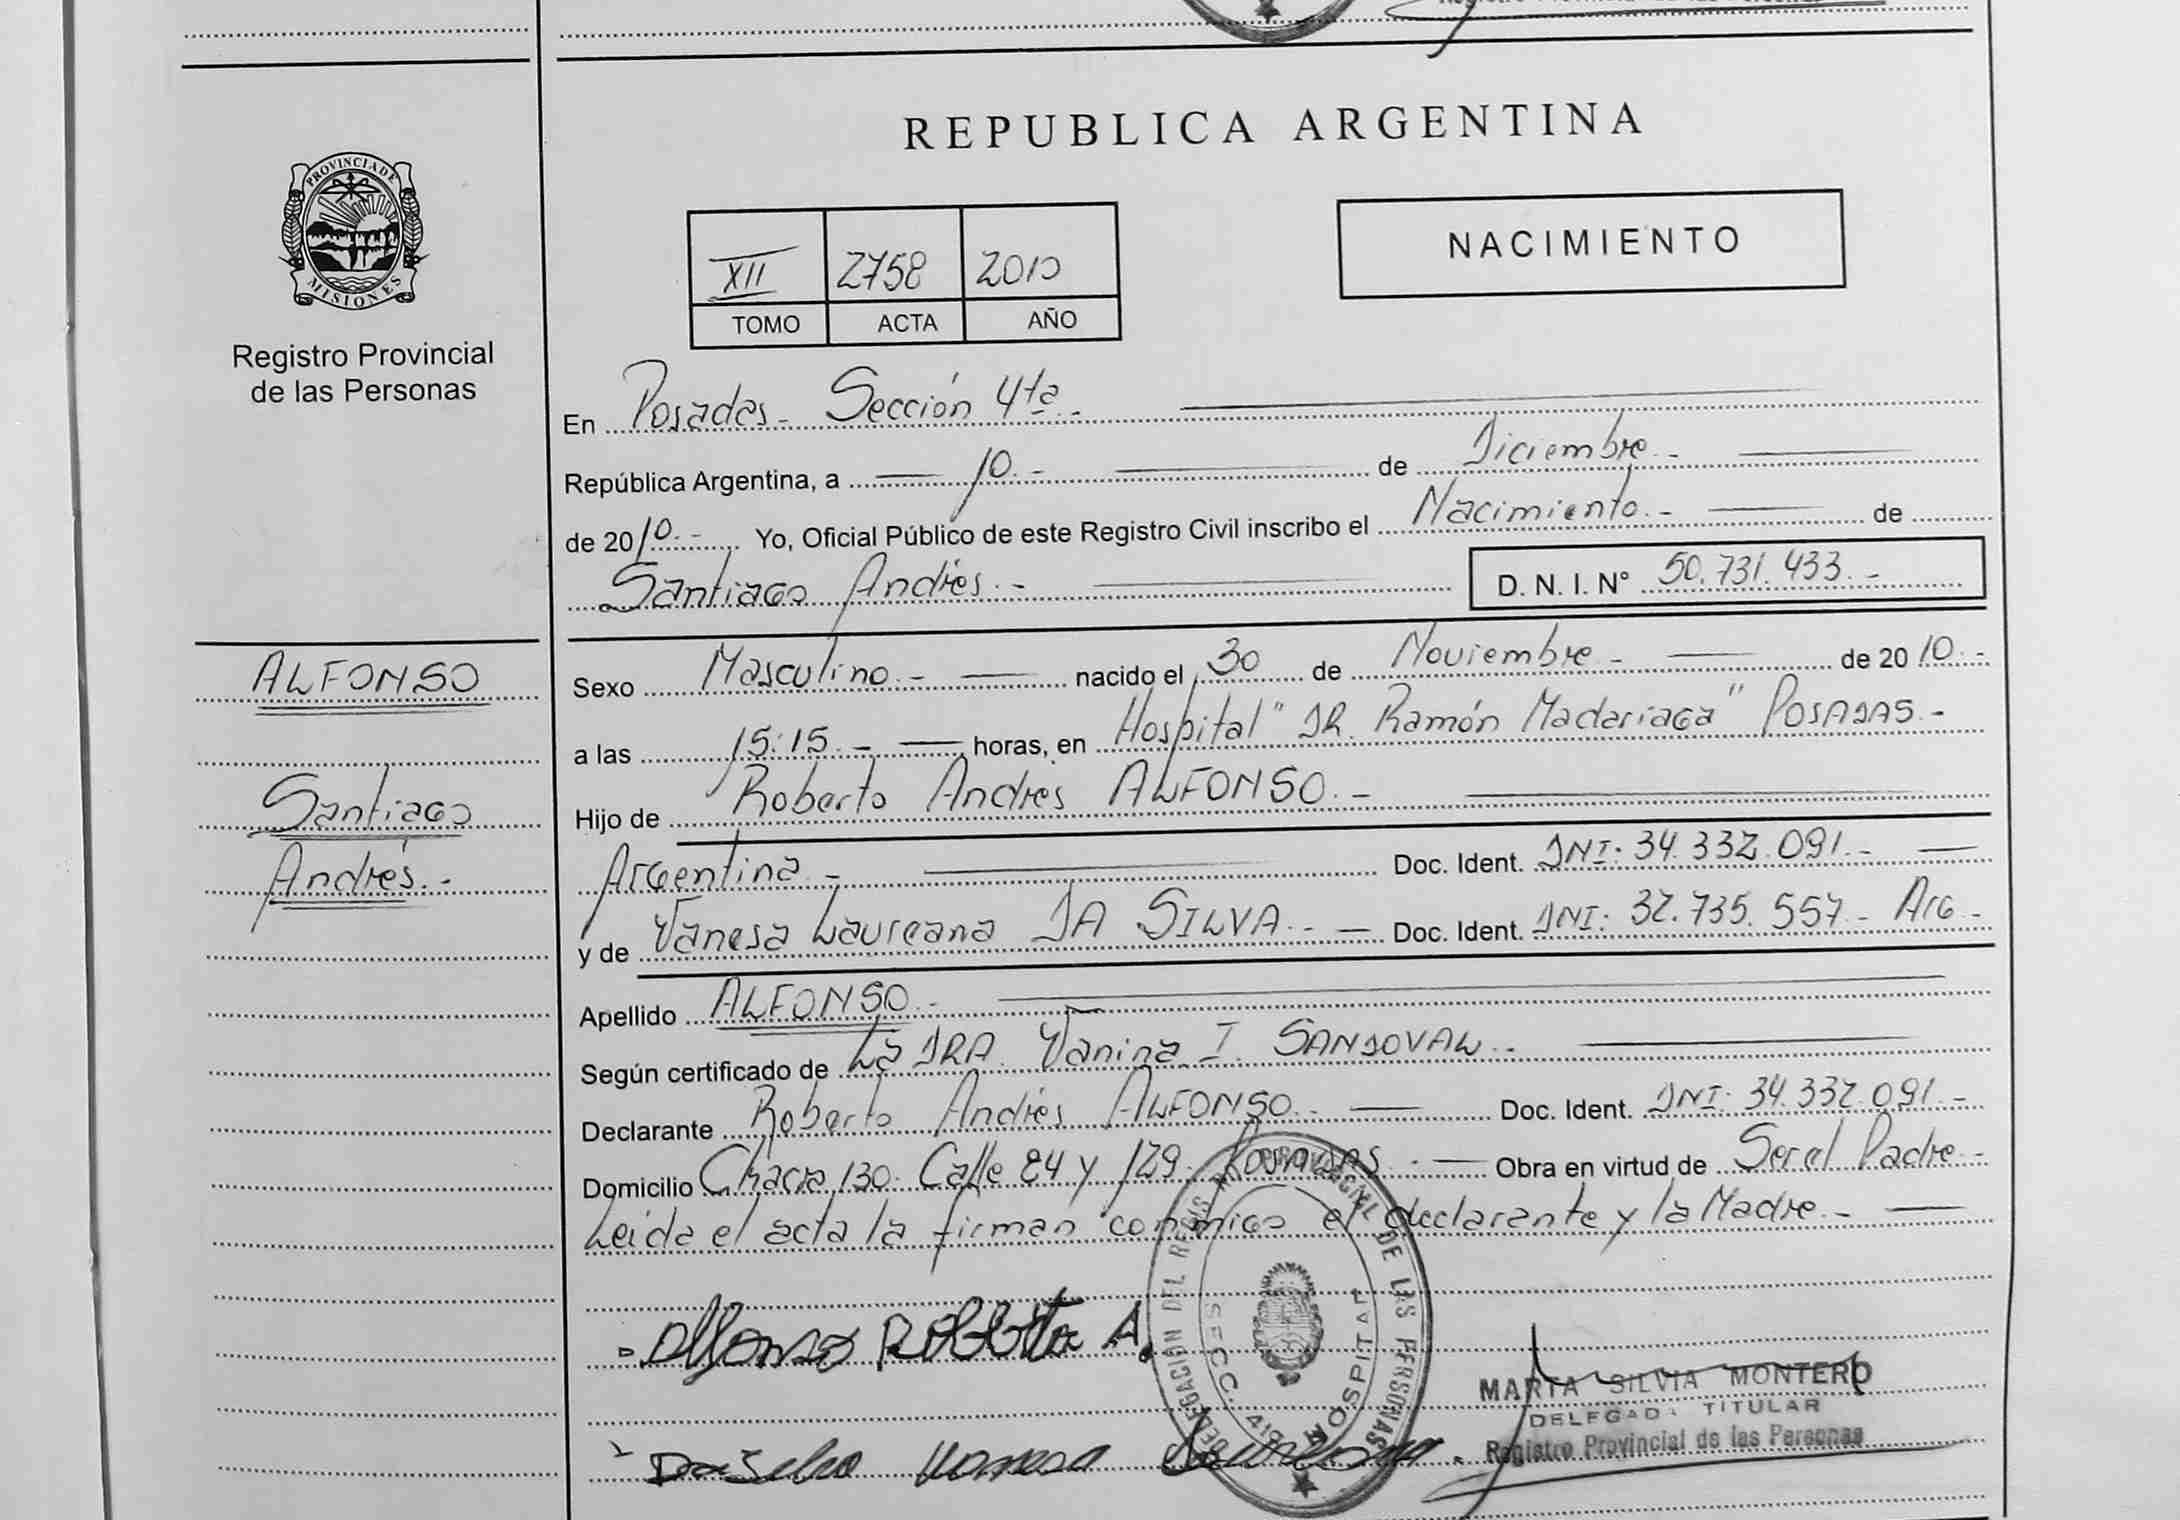 REPUBLICA ARGENTINA
PROVINCIA DE
MISIONES
Registro Provincial
de las Personas
XII 2758 2010
TOMO ACTA AÑO
NACIMIENTO
En Posadas - Sección 4ta -
República Argentina, a 10.- de Diciembre -
de 2010.- Yo, Oficial Público de este Registro Civil inscribo el Nacimiento.- de
Santiago Andrés.- D. N. I. N° 50.731.433.-
ALFONSO
Santiago
Andrés.-
Sexo Masculino.- nacido el 30 de Noviembre - de 2010.-
a las 15:15.- horas, en Hospital "DR. Ramón Madariaga" POSADAS.-
Hijo de Roberto Andrés ALFONSO.-
Argentina - Doc. Ident. DNI: 34.332.091.-
y de Vanesa Laureana DA SILVA.- Doc. Ident. DNI: 32.735.557 - Arg -
Apellido ALFONSO.-
Según certificado de La DRA. Vanina I. SANDOVAL.-
Declarante Roberto Andrés ALFONSO.- Doc. Ident. DNI: 34.332.091.-
Domicilio Chacra 130. Calle 84 y 129. Posadas.- Obra en virtud de Ser el Padre.-
Leida el acta la firman conmigo el declarante y la Madre.-
Alfonso Roberto A.
Da Silva Vanesa Laureana.
DELEGACIÓN DEL REGISTRO PROVINCIAL DE LAS PERSONAS
SECC. 4ta HOSPITAL
MARIA SILVIA MONTERO
DELEGADA TITULAR
Registro Provincial de las Personas